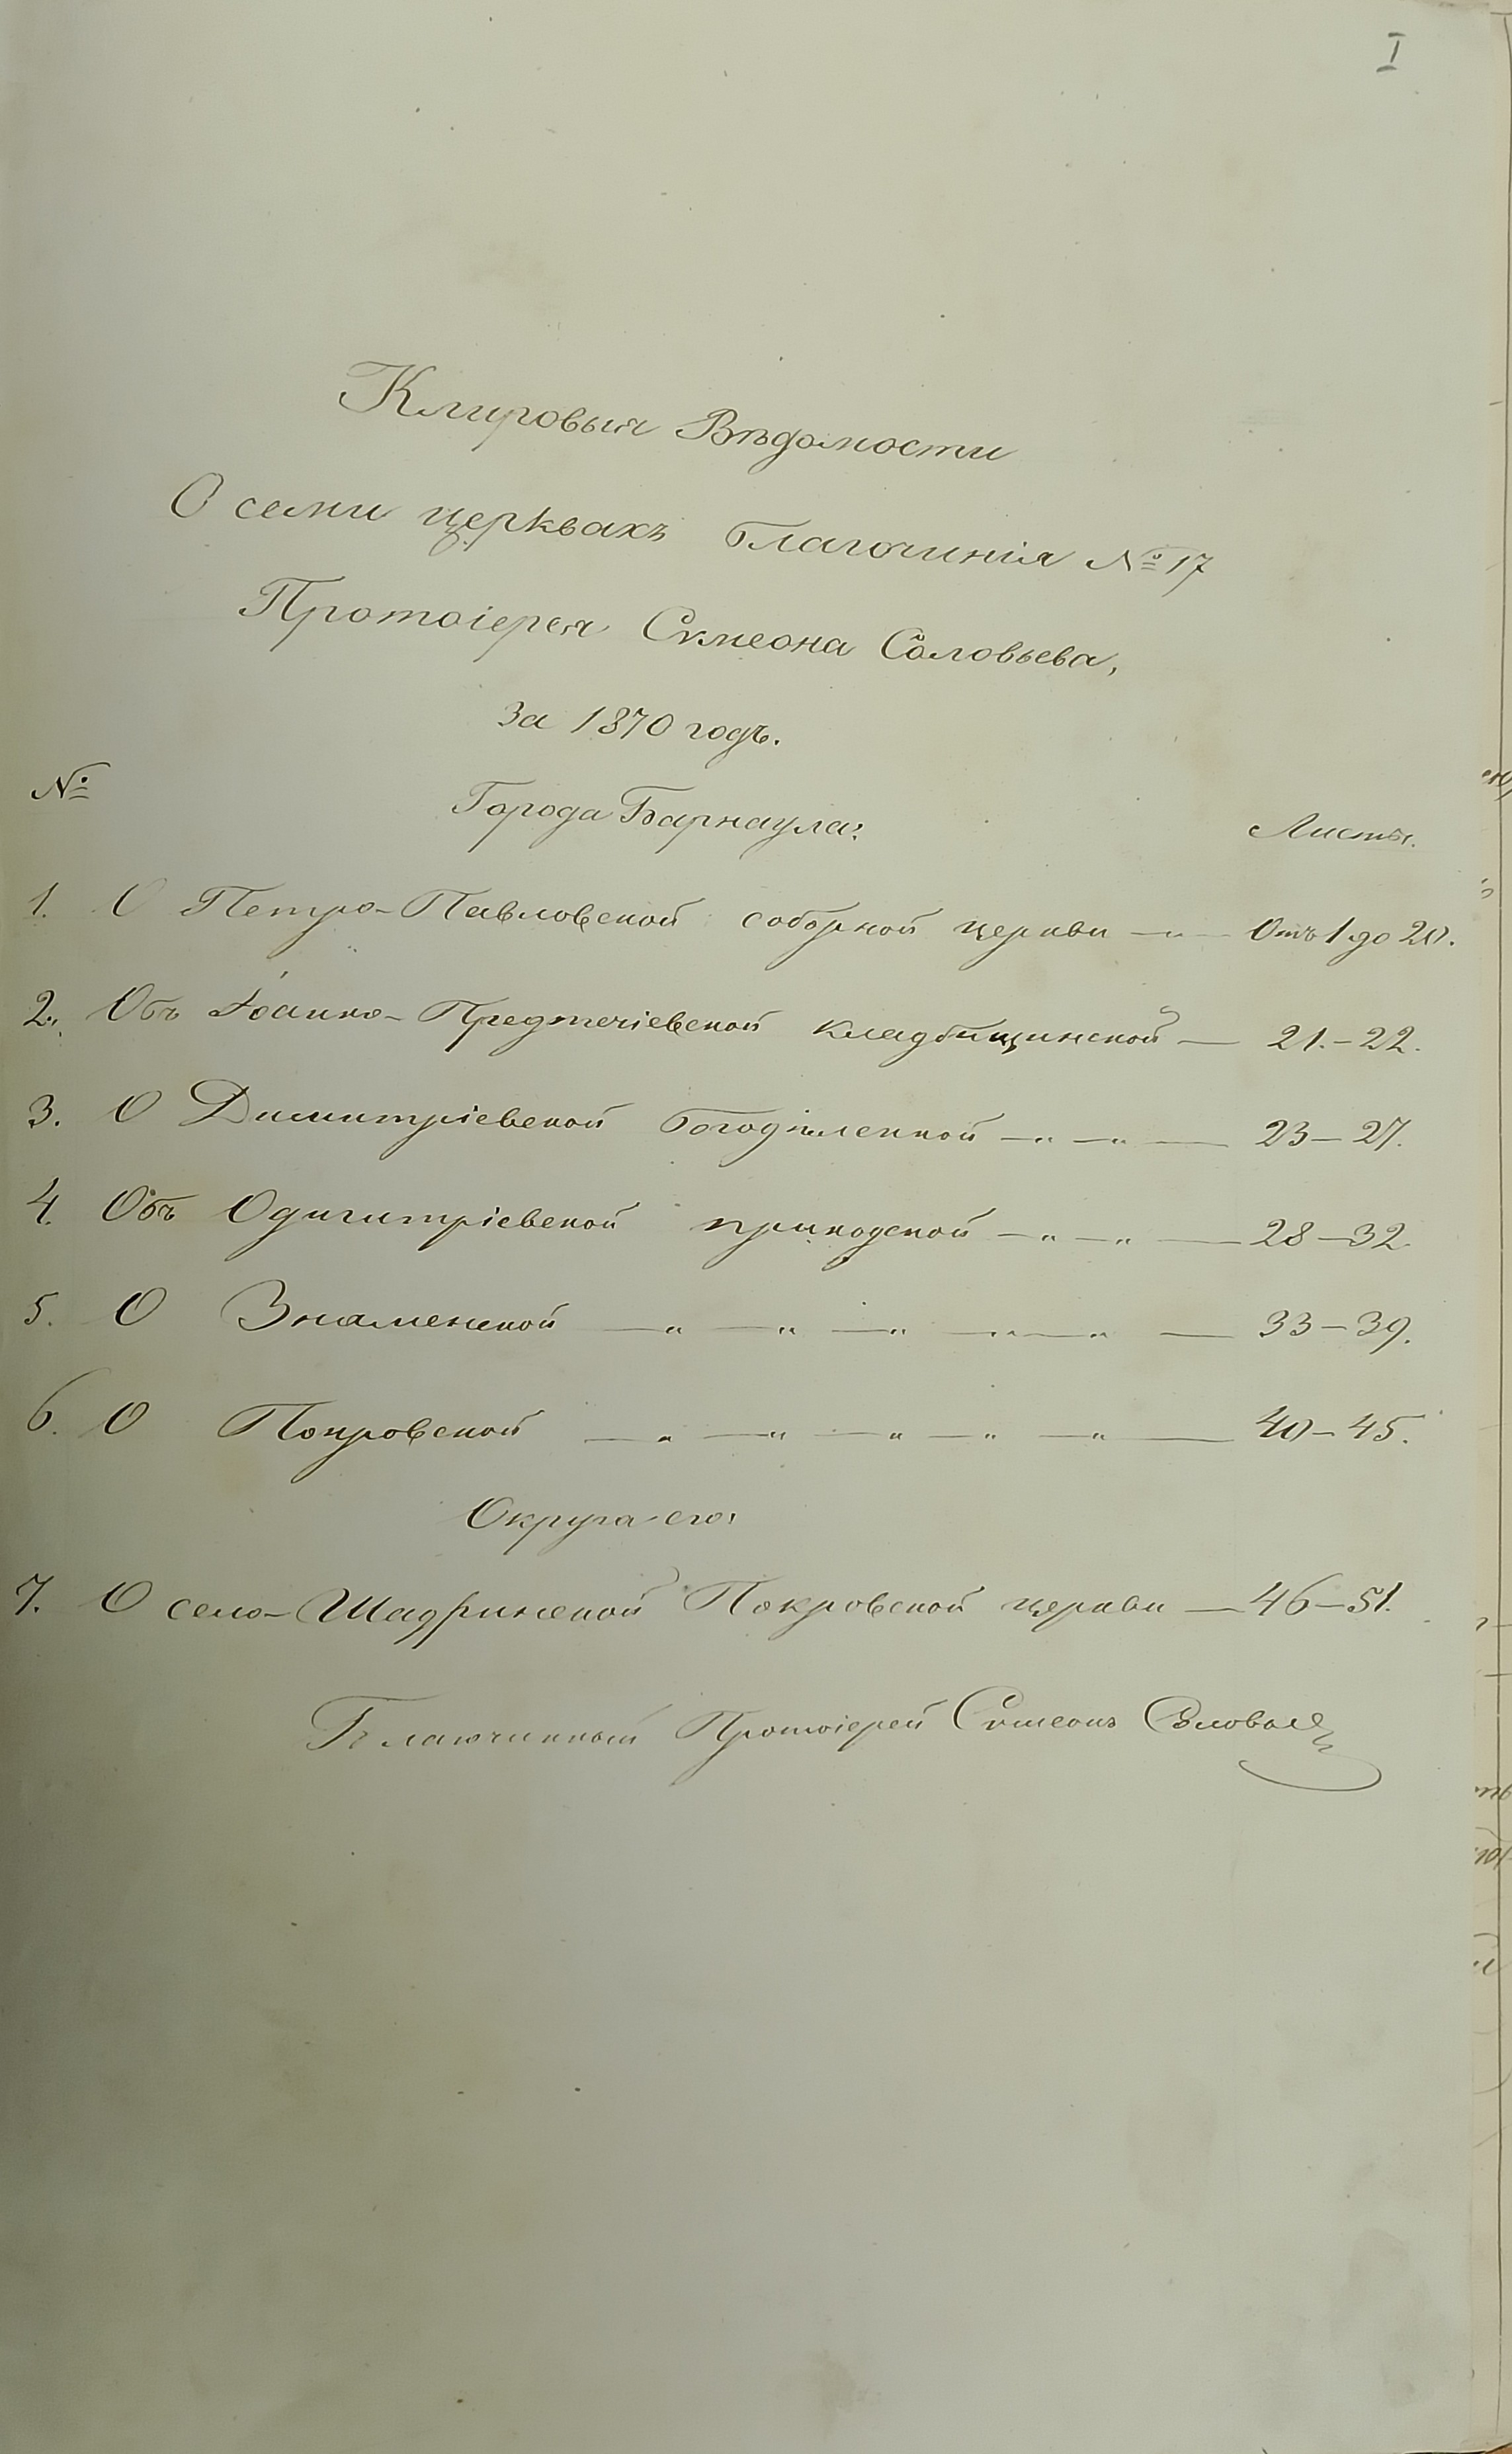 I
Клировыя Вѣдомости
О семи церквахъ Благочинія № 17
Протоіерея Сѵмеона Соловьева,
за 1870 годъ.
№ Города Барнаула: Листы.
1. О Петро-Павловской соборной церкви — „ — Отъ 1 до 20.
2. Объ Іоанно-Предтечіевской кладбищинской — 21.-22.
3. О Димитріевской богодѣленной — „ — „ — 23-27.
4. Объ Одигитріевской приходской — „ — „ — 28-32.
5. О Знаменской — „ — „ — „ — „ — „ — 33-39.
6. О Покровской — „ — „ — „ — „ — „ — 40-45.
Округа его:
7. О село-Шадринской Покровской церкви — 46-51.
Благочинный Протоіерей Сѵмеонъ Соловьевъ